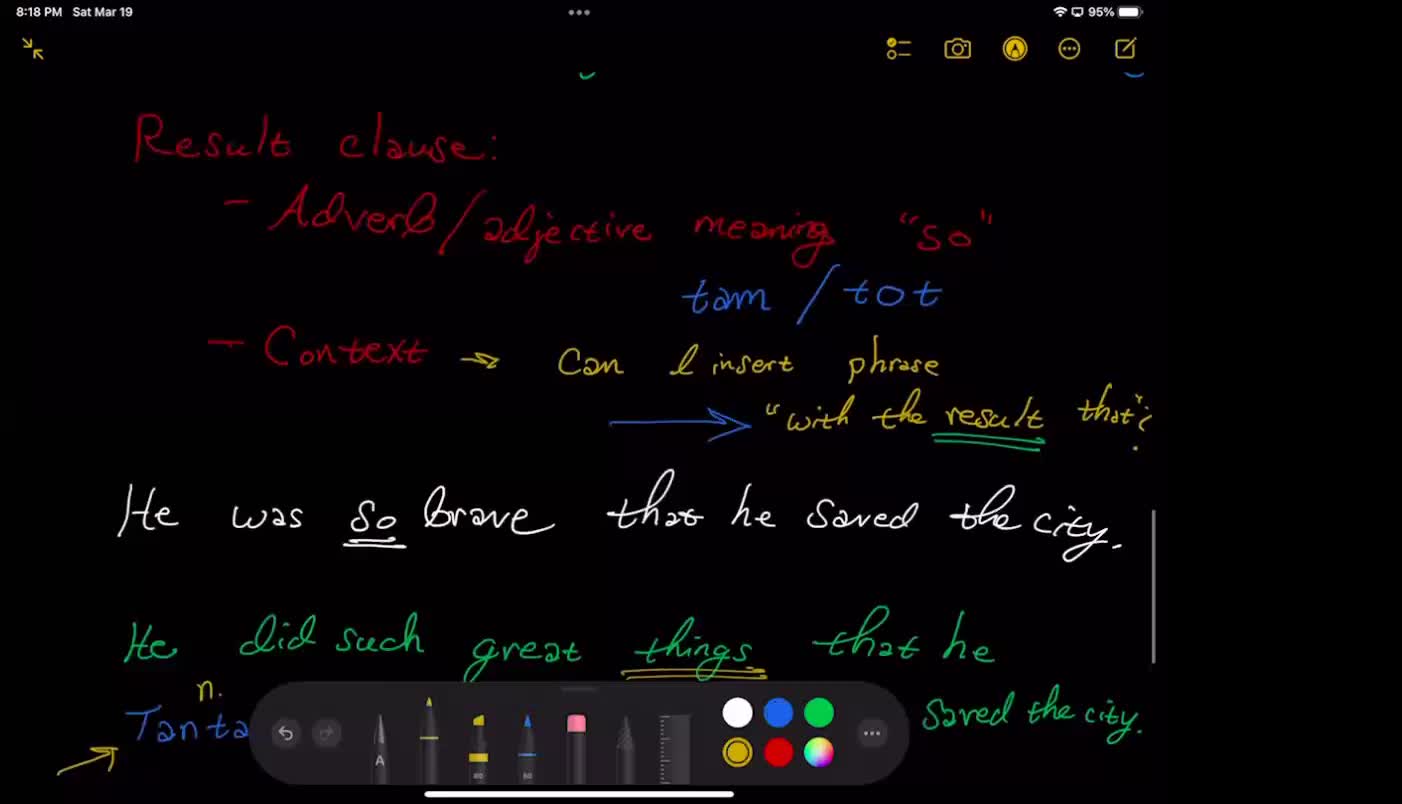 8:18 PM Sat Mar 19
95%
Result clause:
- Adverb/adjective meaning "so"
tam / tot
- Context → Can I insert phrase
→ "with the result that"?
He was so brave that he saved the city.
He did such great things that he
saved the city.
n.
Tanta
A
80
50